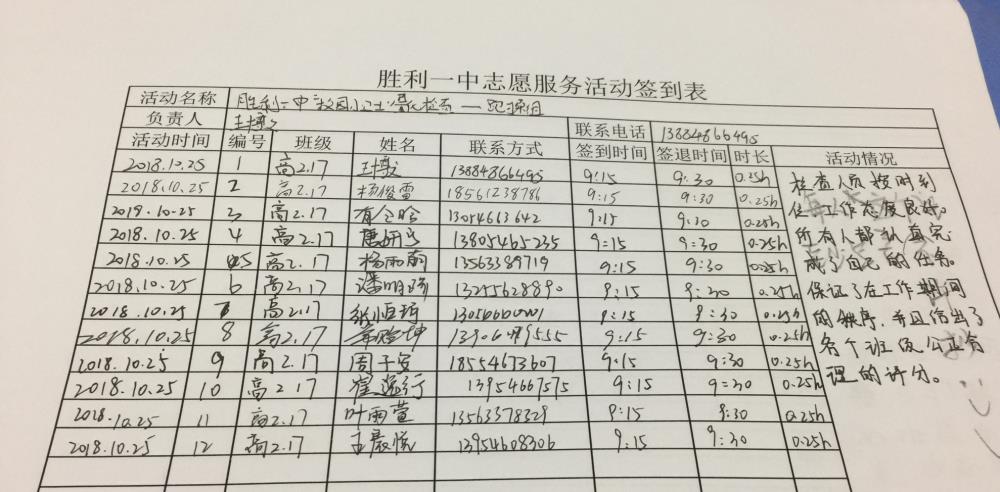 胜利一中志愿服务活动签到表
活动名称 胜利一中校园卫士 — 纪操组
负责人 联系电话 13884866495
活动时间 编号 班级 姓名 联系方式 签到时间 签退时间 时长 活动情况
2018.10.25 1 高2.17 13884866495 9:15 9:30 0.25h
2018.10.25 2 高2.17 杨俊雷 18561238786 9:15 9:30 0.25h
2018.10.25 3 高2.17 13054663642 9:15 9:30
2018.10.25 4 高2.17 13805465235 9:15 9:30 0.25h
2018.10.25 5 高2.17 杨雨萌 13563389719 9:15 9:30 0.25h
2018.10.25 6 高2.17 潘明瑞 13255628890 9:15 9:30 0.25h
2018.10.25 7 高2.17 9:15 9:30 0.25h
2018.10.25 8 高2.17 9:15 9:30 0.25h
2018.10.25 9 高2.17 周子安 18554673607 9:15 9:30 0.25h
2018.10.25 10 高2.17 13954667575 9:15 9:30 0.25h
2018.10.25 11 高2.17 叶雨萱 13563378329 9:15 9:30 0.25h
2018.10.25 12 高2.17 王晨悦 13954608306 9:15 9:30 0.25h
检查人员按时到
位，工作态度良好。
所有人都认真完
成了自己的任务。
保证了在工作期间
的秩序，并且给出了
各个班级公正合
理的评分。